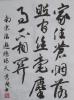 家住蒼烟落
照間絲毫塵
事不相關
南宋陸游